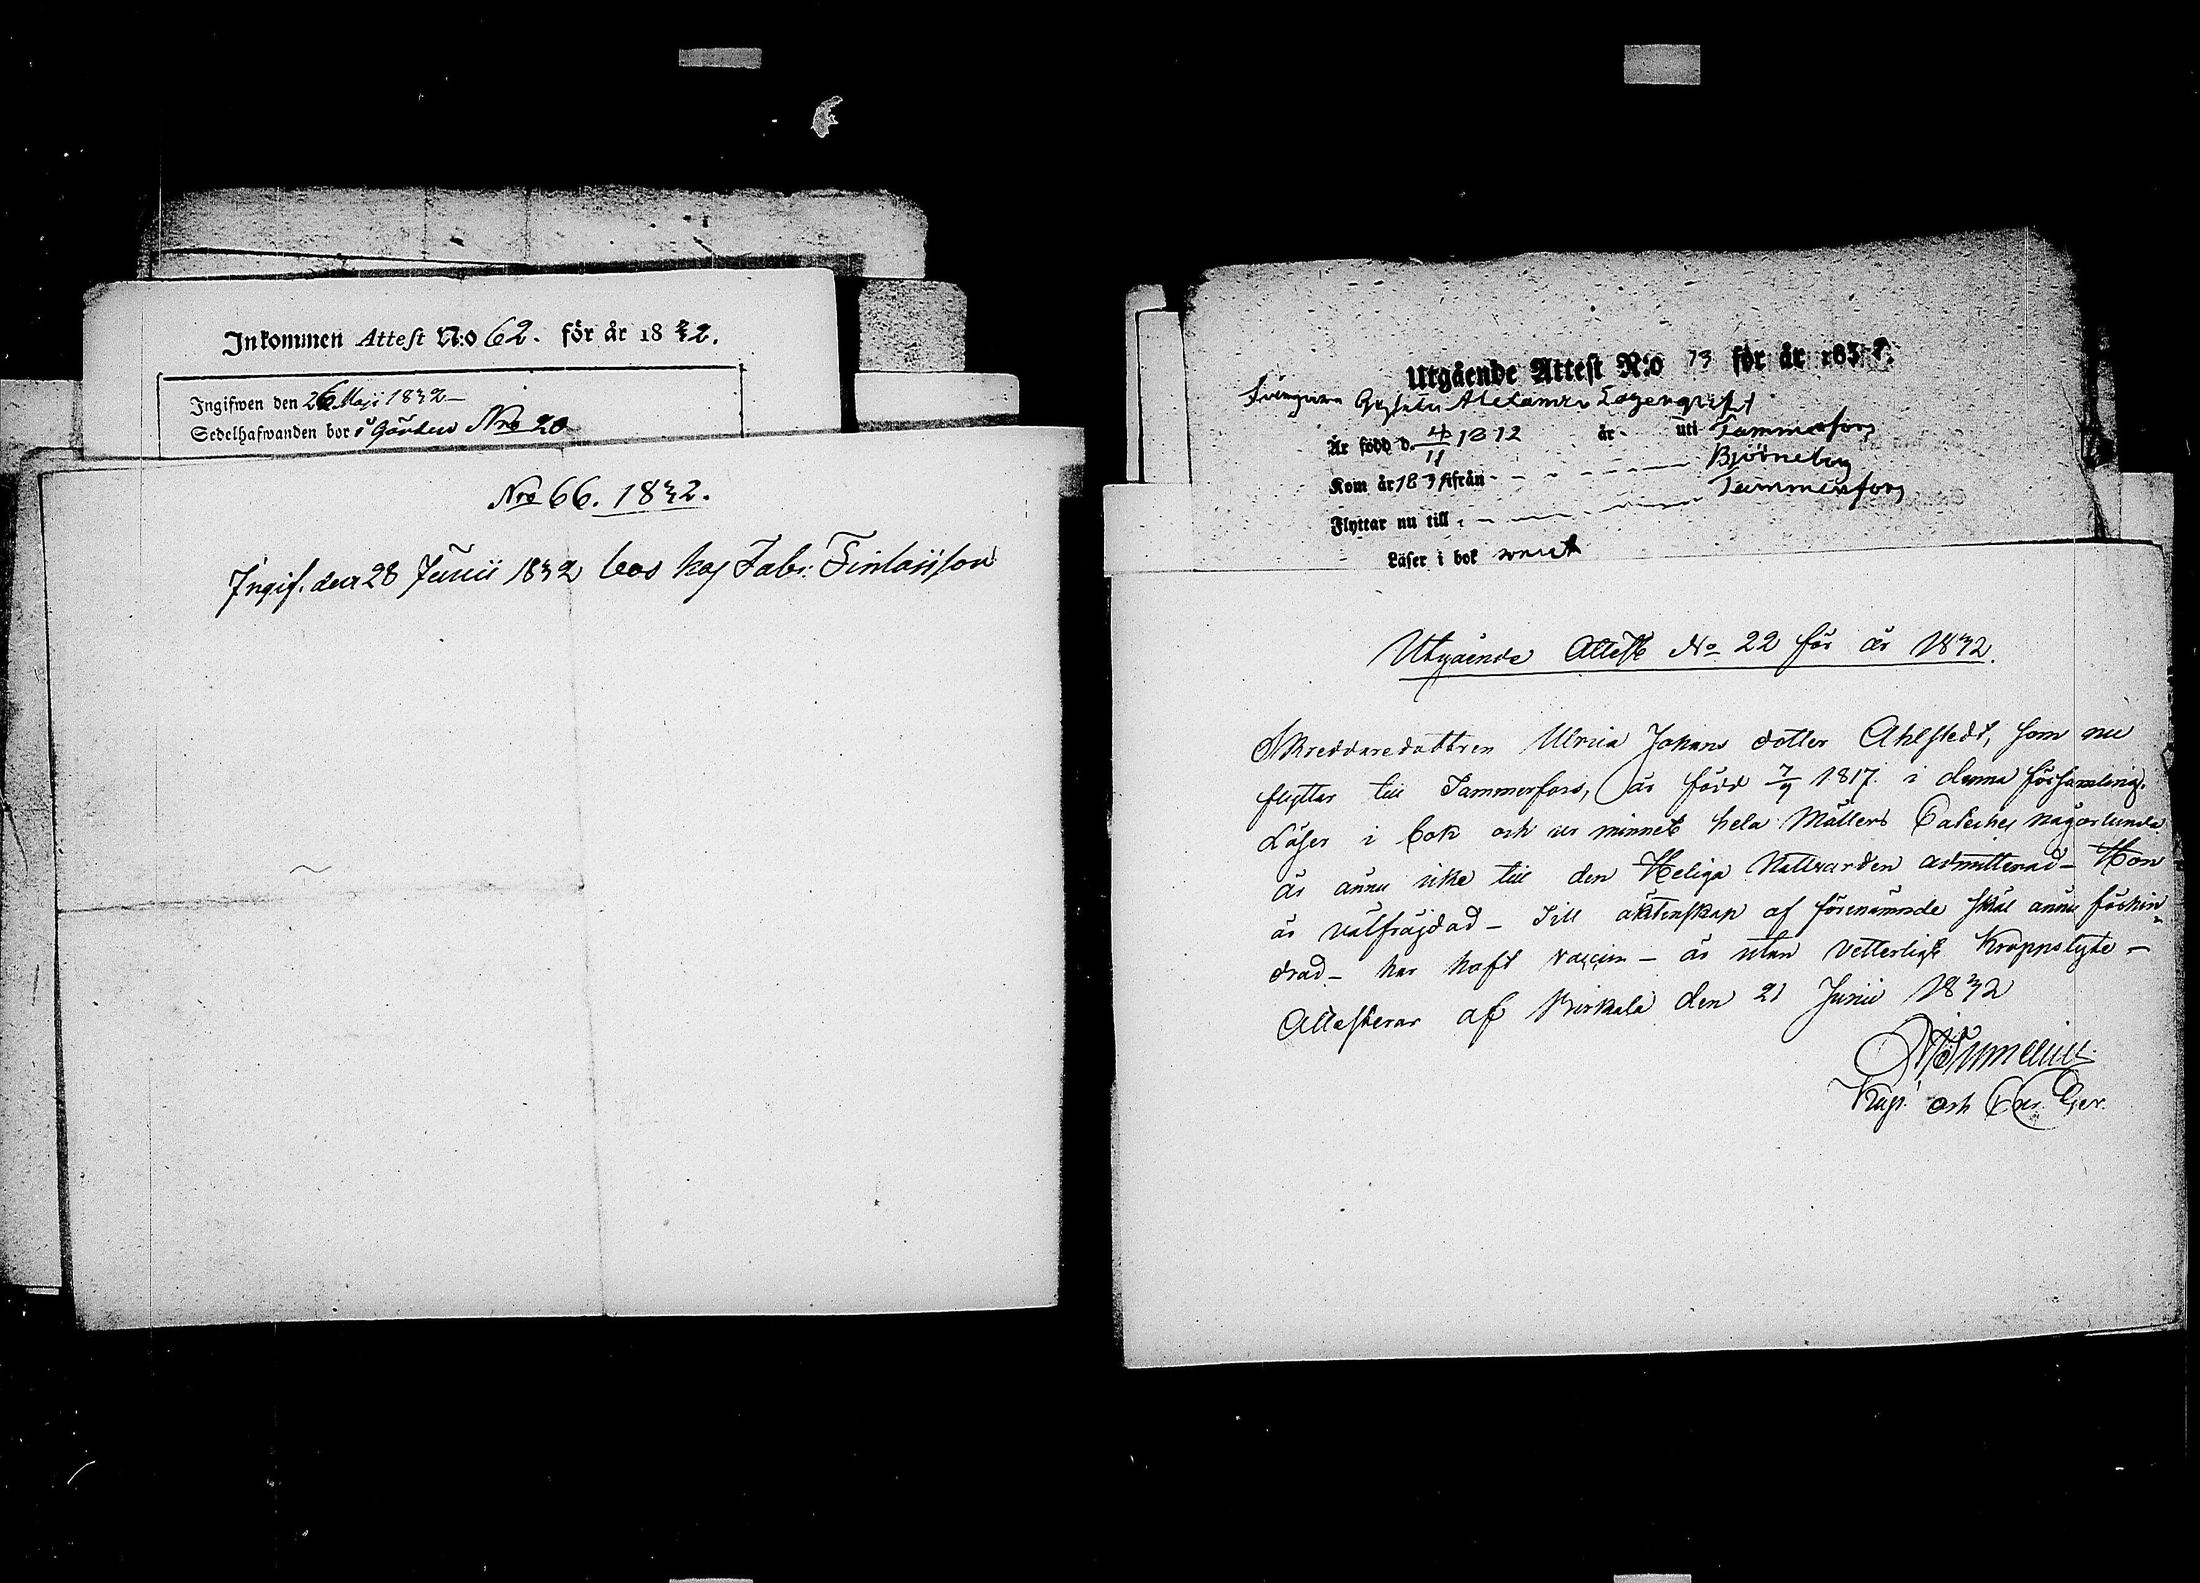 Inkommen Attest N:o 62. för år 1832.
Ingifwen den 26 Maji 1832
Sedelhafwanden bor i Gården Nro 20
Nro 66. 1832.
Ingif. den 28 Junii 1832 bor hos Fabr: Finlaijson
Utgående Attest N:o 73 för år 183
Gustava Lagerqvist
Är född d. 4/11 1812 år uti Tammerfors
Kom år 1831 ifrån Björneborg
Flyttar nu till Tammerfors
Läser i bok
Utgående Attest No 22 för år 1832.
Skreddaredottren Ulrica Johans dotter Ahlstedt, som nu
flyttar till Tammerfors, är född 7/9 1817 i denna församling.
Läser i bok och ur minnet hela Möllers Cateches någorlunda
är ännu icke till den Heliga Nattvarden admitterad – Hon
är välfräjdad – Till äktenskap af förenämnde skäl ännu förhin
drad – har haft vaccin – är utan vetterligt kroppslyte –
Attesterar af Birkala den 21 Junii 1832
Kapl. och